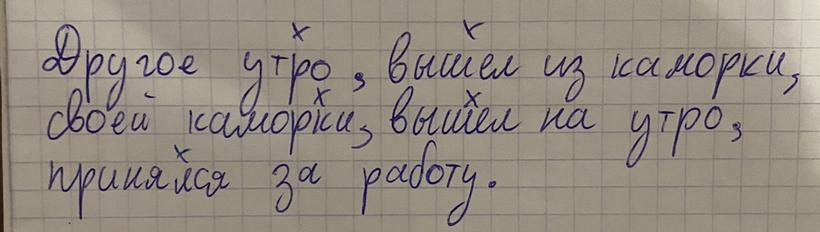 Другое утро, вышел из каморки,
своей каморки, вышел на утро,
принялся за работу.